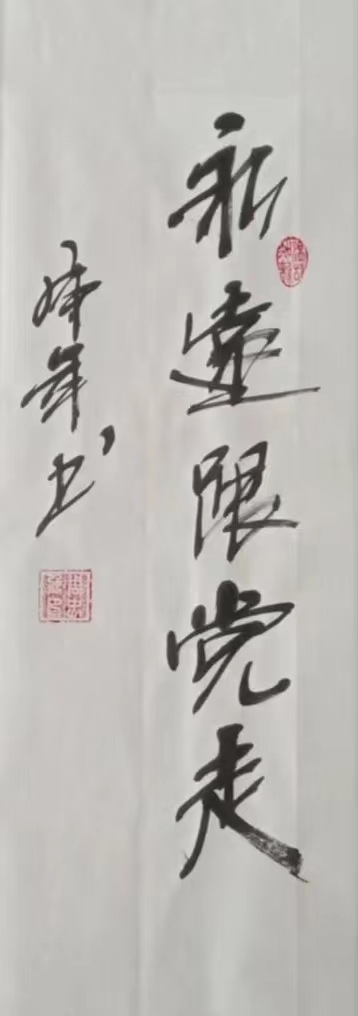 永远跟党走
年书